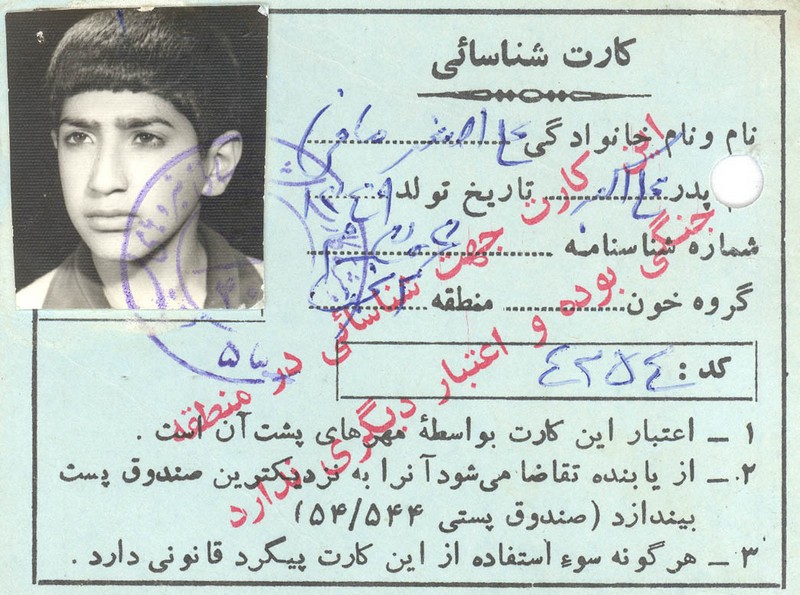 کارت شناسائی
نام و نام خانوادگی علی اصغر صافی
پدر علی اکبر تاریخ تولد
شماره شناسنامه
گروه خون منطقه
کد : ٤٢٥٤
۱ ـ اعتبار این کارت بواسطهٔ مهرهای پشت آن است .
۲ ـ از یابنده تقاضا می‌شود آنرا به نزدیکترین صندوق پست
بیندازد (صندوق پستی ۵۴/۵۴۴)
۳ ـ هرگونه سوء استفاده از این کارت پیگرد قانونی دارد .
این کارت جهت شناسائی در منطقه
جنگی بوده و اعتبار دیگری ندارد